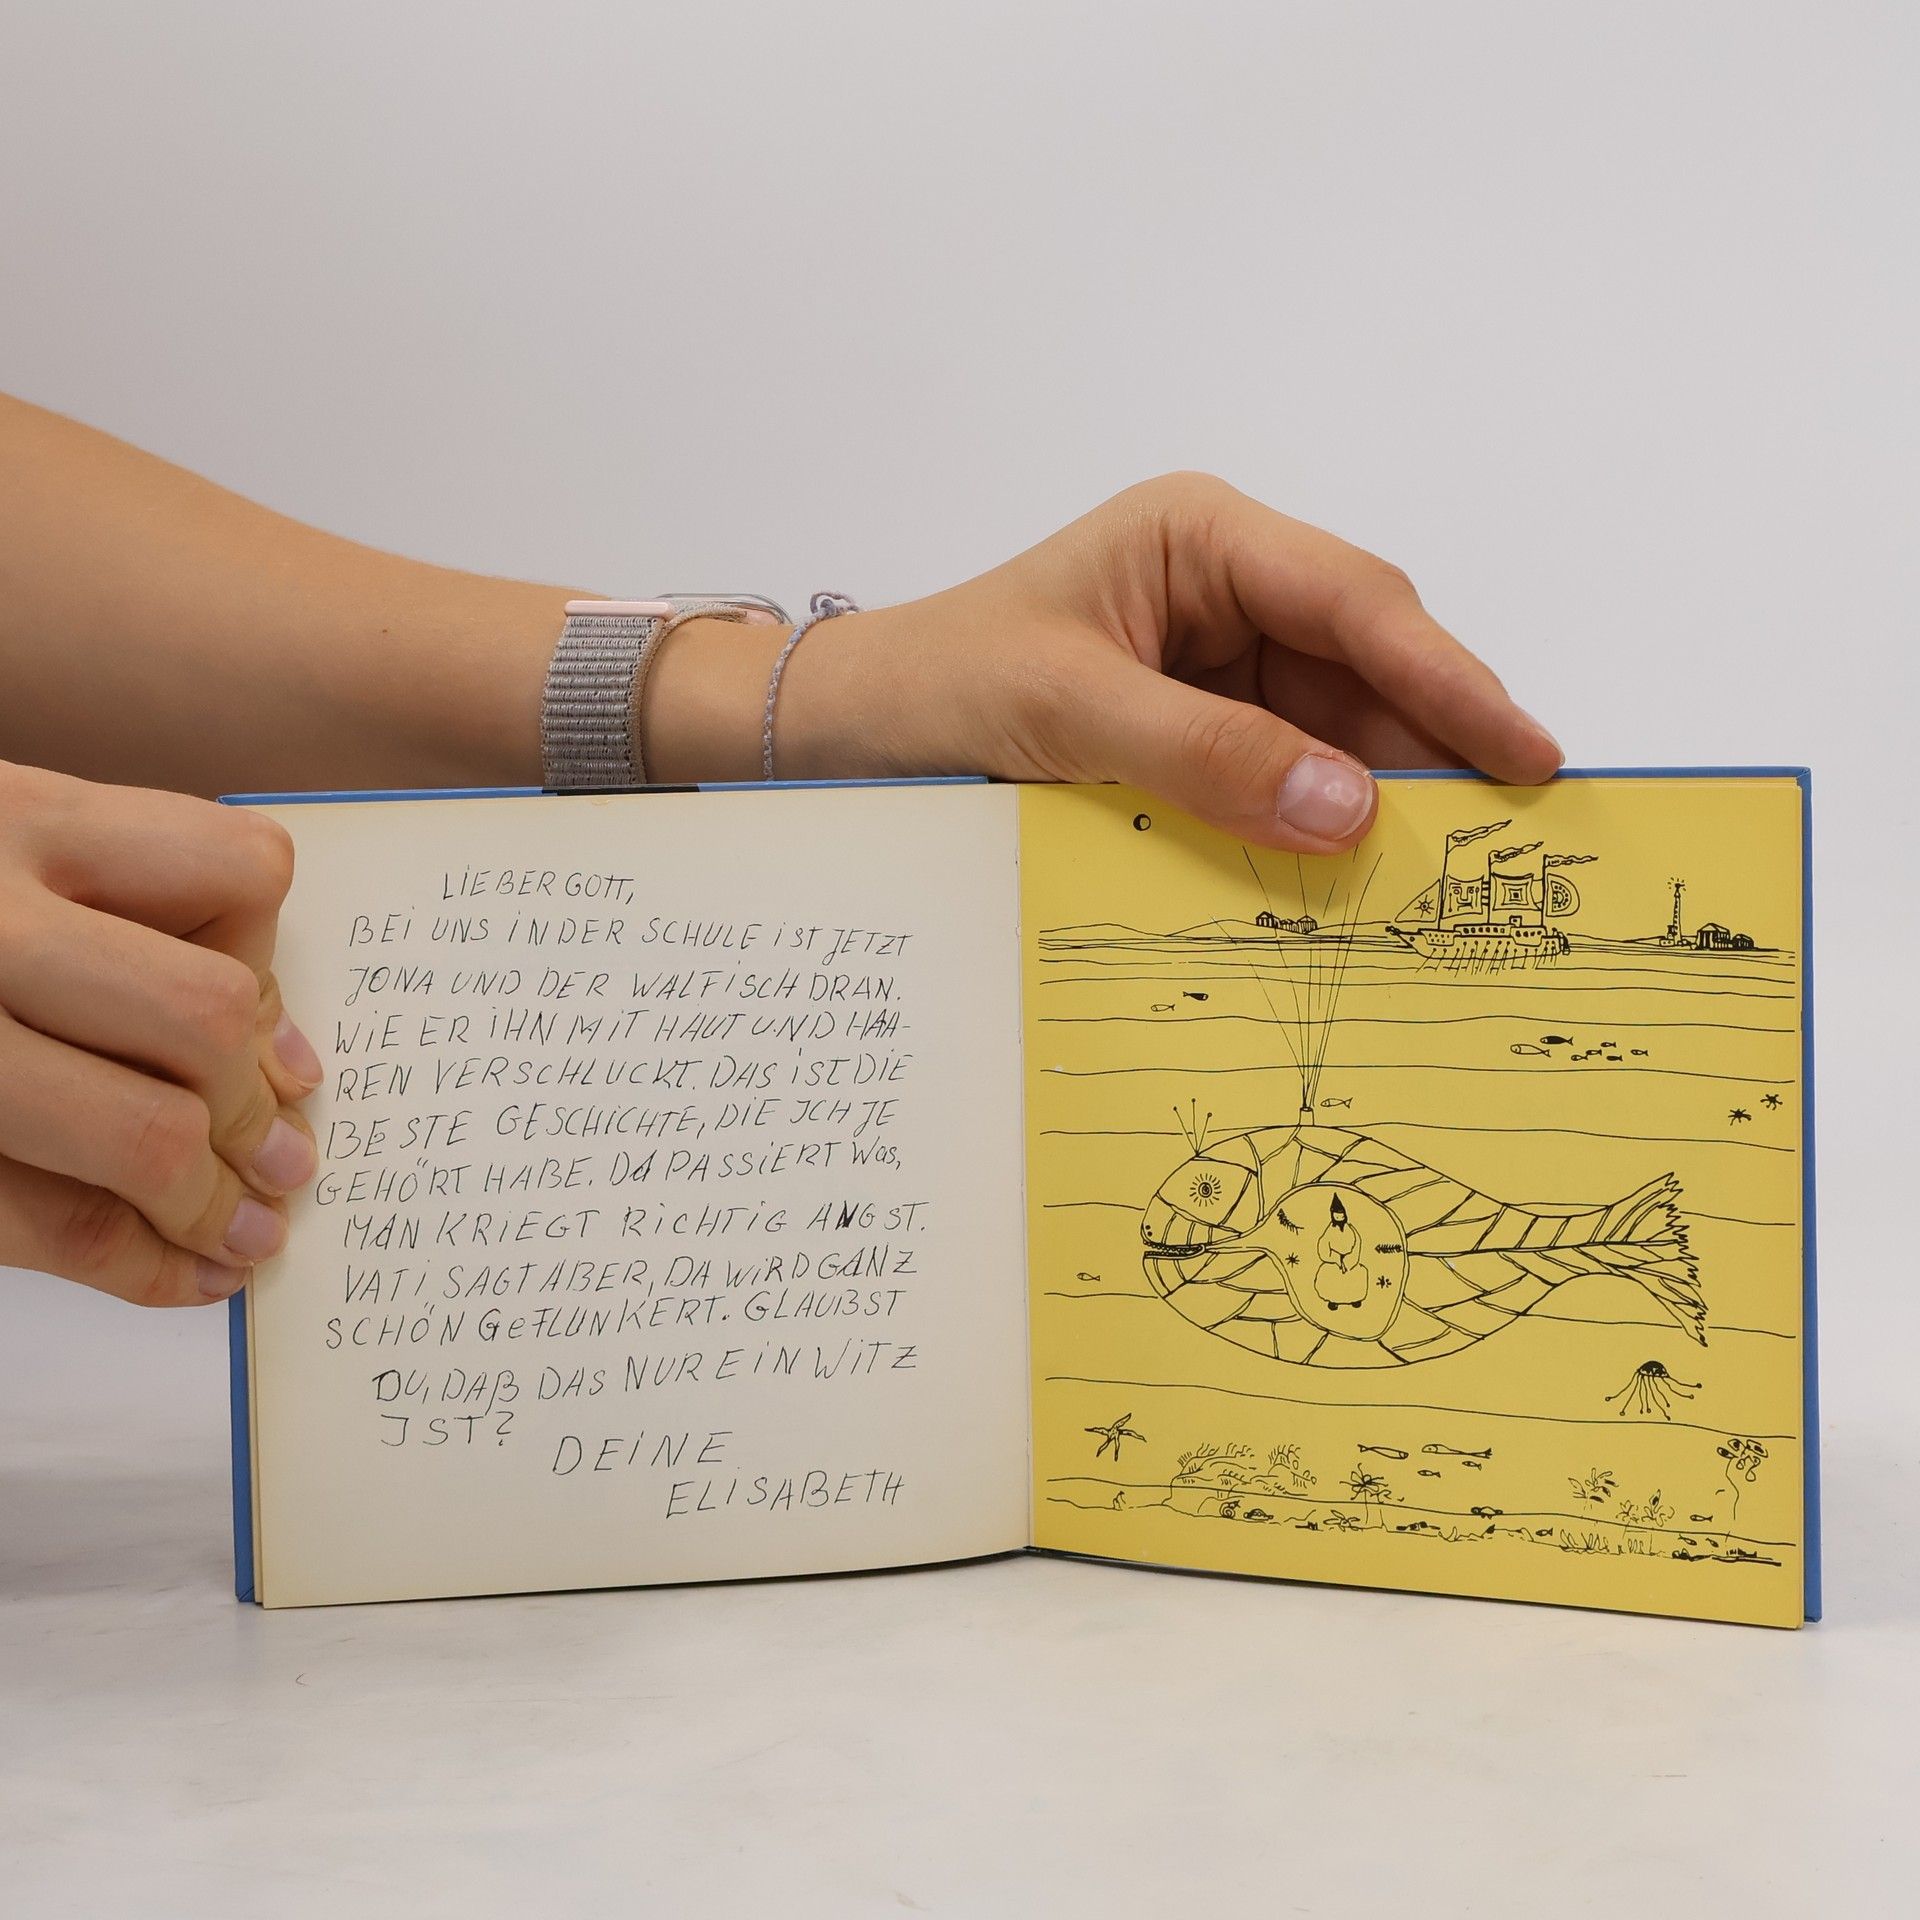 LiEBER GOTT,
BEi UNS iN DER SCHULE iST JETZT
JONA UND DER WALFiSCH DRAN.
WiE ER iHN MiT HAUT UND HAA-
REN VERSCHLUCKT. DAS iST DIE
BESTE GESCHiCHTE, DiE ICH JE
GEHÖRT HABE. DA PASSiERT Was,
MAN KRiEGT RiCHTiG ANGST.
VATi SAGT ABER, DA WiRD GANZ
SCHÖN GeFLUNKERT. GLAUBST
DU, DAß DAS NUR EiN WiTZ
IST?
DEiNE
ELiSABETH